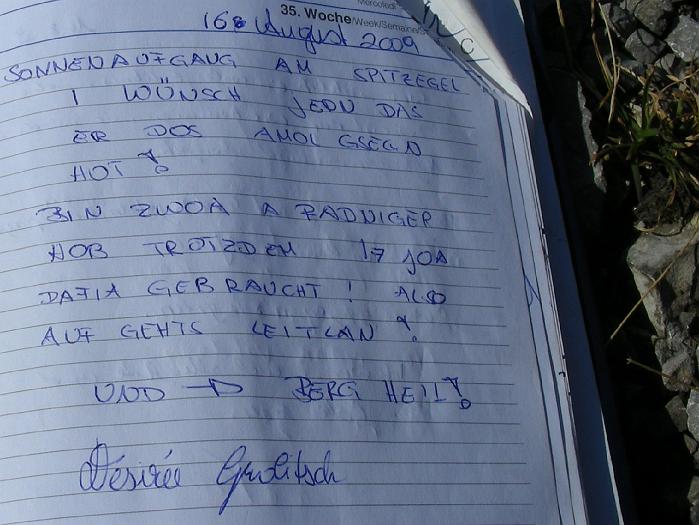 35. Woche/Week/Semaine/S
16. August 2009
SONNENAUFGAUG AM SPITZEGEL
I WÜNSCH JEDN DAS
ER DOS AMOL GSEGN
HOT !
BIN ZWOA A RADNIGER
HOB TROTZDEM 17 JOA
DAFIA GEBRAUCHT ! ALSO
AUF GEHTS LEITLAN !
UND → BERG HEIL !
Désirée